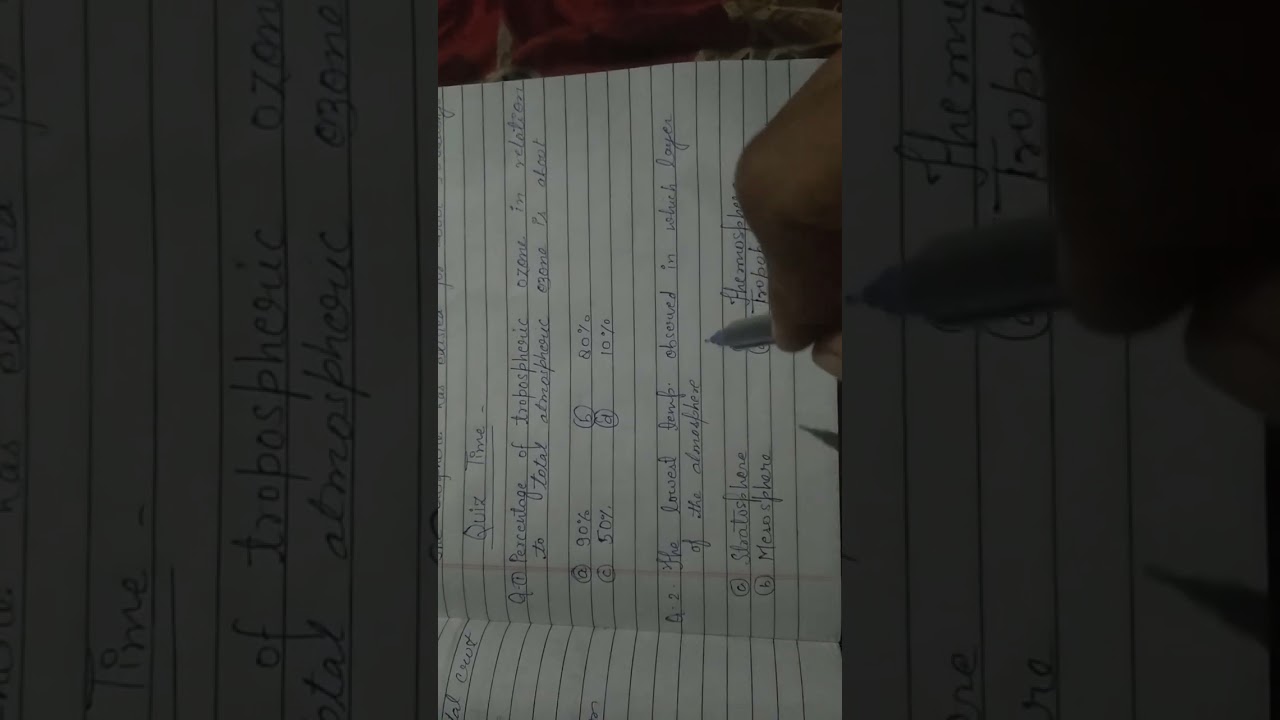 Quiz Time -
Q.① Percentage of tropospheric ozone in relation
to total atmospheric ozone is about
ⓐ 90% ⓑ 20%
ⓒ 50% ⓓ 10%
Q.2. The lowest temp. observed in which layer
of the atmosphere
ⓐ Stratosphere Thermospher
ⓑ Mesosphere Tropo